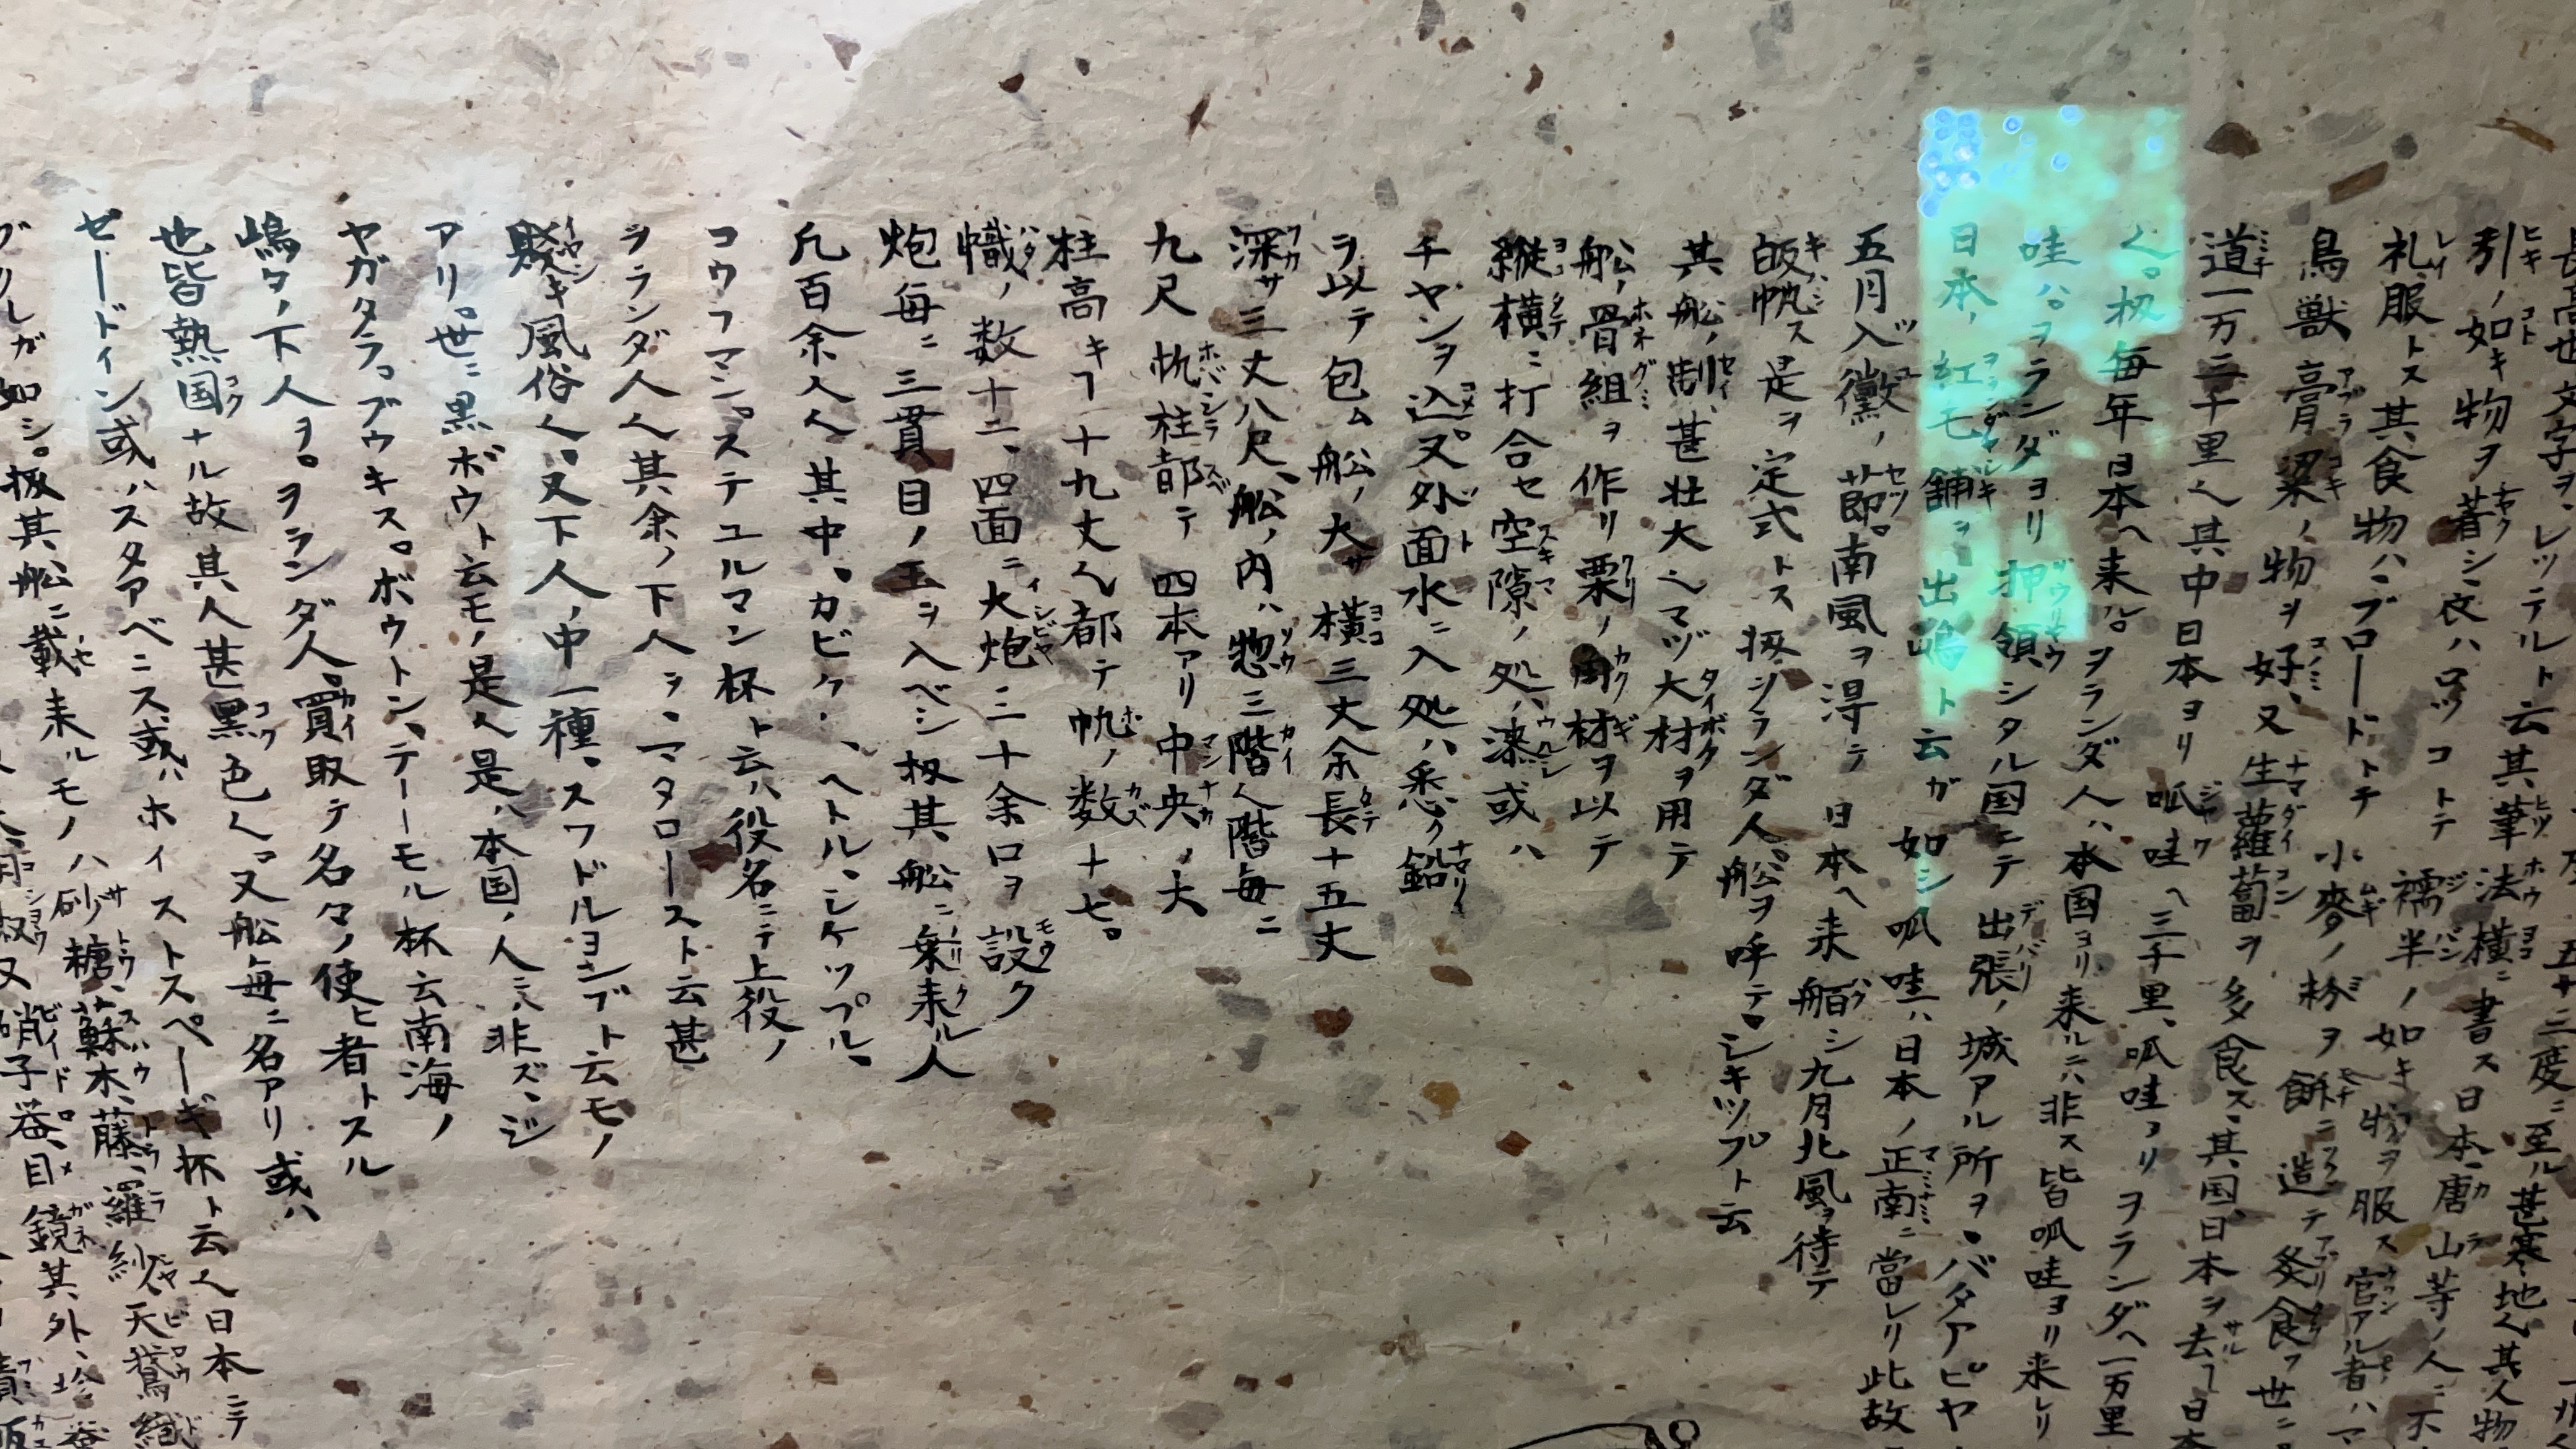 長高也文字ヲレッテルト云其筆法横ニ書ス日本唐山等ノ人ニ不
引ノ如キ物ヲ著シ衣ハロッコトテ襦半ノ如キ物ヲ服ス官アル者ハマ
礼服トス其食物ハブロードトテ小麥ノ粉ヲ餅ニ造テ炙食フ世ニ
鳥獣膏粱ノ物ヲ好ミ又生蘿蔔ヲ多食ス其国日本ヲ去ヿ日本
道一万三千里ヘ其中日本ヨリ呱哇ヘ三千里呱哇ヨリヲランダヘ一万里
也扨毎年日本ヘ来ルヲランダ人ハ本国ヨリ来ルニハ非ス皆呱哇ヨリ来レリ
哇ハヲランダヨリ押領シタル国ニテ出張ノ城アル所ヲバタアビヤ
日本ノ紅毛舗ヲ出嶋ト云ガ如シ呱哇ハ日本ノ正南ニ當レリ此故
五月入黴ノ節南風ヲ得テ日本ヘ来舶シ九月北風ヲ待テ
皈帆ス是ヲ定式トス扨ヲランダ人船ヲ呼テシキップト云
其船ノ制甚壮大也マヅ大材ヲ用テ
船ノ骨組ヲ作リ栗ノ角材ヲ以テ
縦横ニ打合セ空隙ノ処ハ漆或ハ
チヤンヲ込又外面水ニ入処ハ悉ク鉛
ヲ以テ包ム船ノ大サ横三丈余長十五丈
深サ三丈八尺船ノ内ハ惣三階也階毎ニ
九尺帆柱都テ四本アリ中央ノ大
柱高キヿ十九丈也都テ帆ノ数十七
幟ノ数十二四面ニ大炮三十余口ヲ設ク
炮毎ニ三貫目ノ玉ヲ入ベシ扨其船ニ乗来ル人
凡百余人也其中カビタンヘトルシケップル
コウフマンステユルマン杯ト云ハ役名ニテ上役ノ
ヲランダ人也其余ノ下人ヲマタロースト云甚
賤キ風俗也又下人ノ中一種スワドルヨンゴト云モノ
アリ世ニ黒ボウト云モノ是也是ハ本国ノ人ニハ非ズジ
ヤガタラブウキスボウトンテーモル杯云南海ノ
嶋々ノ下人ヲヲランダ人買取テ名々ノ使ヒ者トスル
也皆熱国ナル故其人甚黒色也又船毎ニ名アリ或ハ
ゼードイン或ハスタアベニス或ハホイストスペーギ杯ト云也日本ニテ
ブリレガ如シ扨其船ニ載来ルモノハ砂糖蘇木藤羅紗天鵞絨
胡椒又硝子器目鏡其外珍器